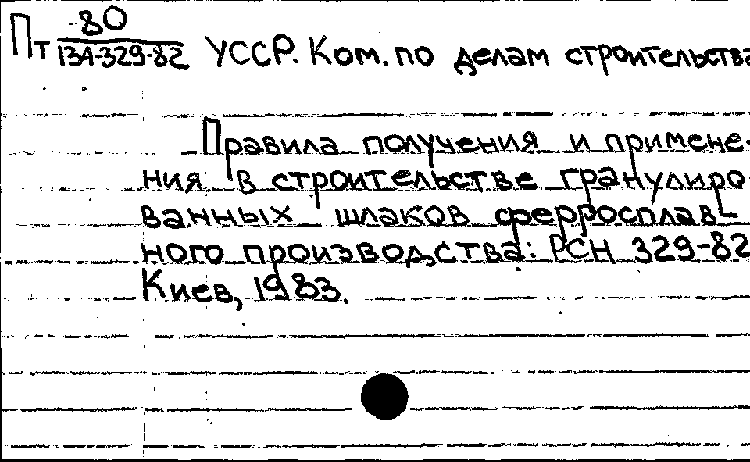 80
Пт 134-329-82 УССР. Ком. по делам строительства
Правила получения и примене-
ния в строительстве гранулиро-
ванных шлаков ферросплав-
ного производства: РСН 329-82
Киев, 1983.